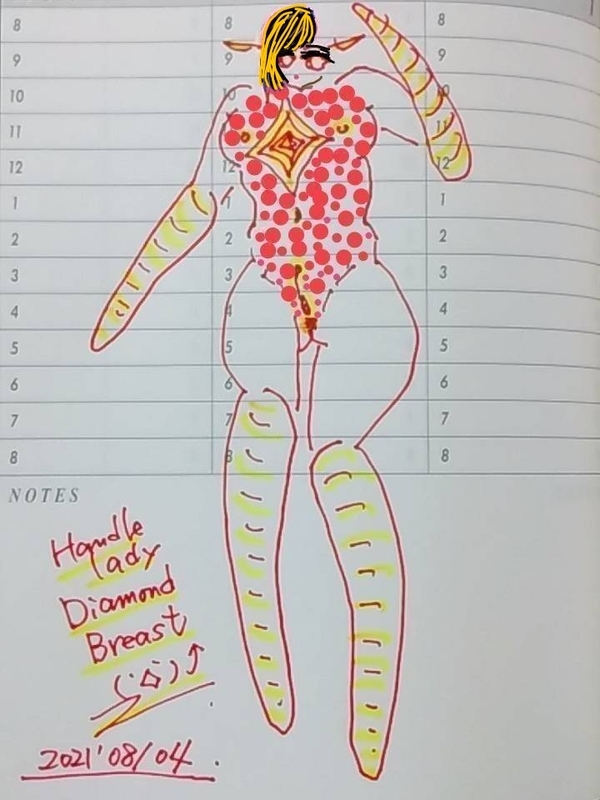 8 8 8
9 9 9
10 10 10
11 11
12 12 12
1 1 1
2 2 2
3 3 3
4 4 4
5 5 5
6 6 6
7 7 7
8 8 8
NOTES
Handle
lady
Diamond
Breast
2021'08/04.